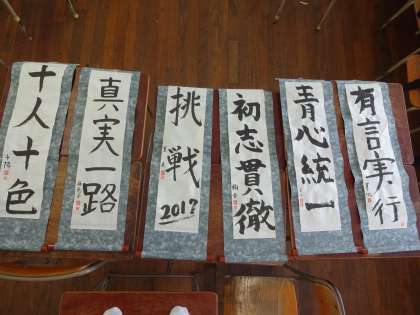 十人十色
真実一路
挑戦
2017
初志貫徹
青心統一
有言実行